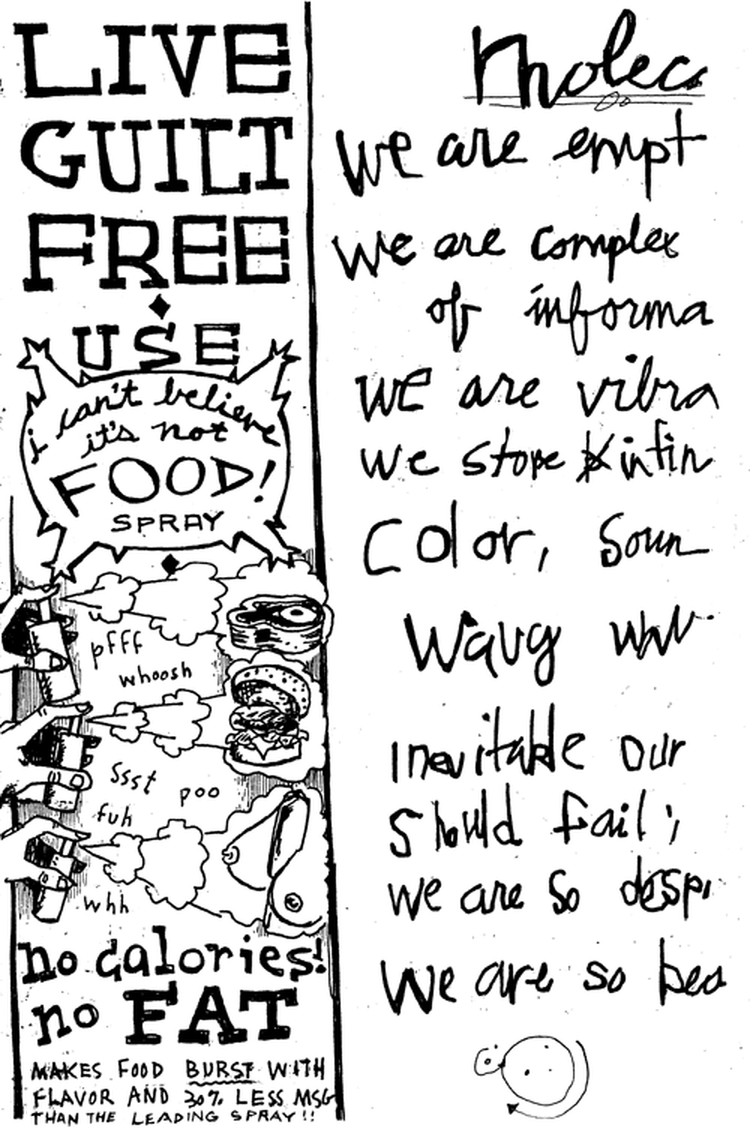 LIVE
GUILT
FREE
USE
i can't believe
it's not
FOOD!
SPRAY
pfff
whoosh
ssst
poo
fuh
whh
no calories!
no FAT
MAKES FOOD BURST WITH
FLAVOR AND 30% LESS MSG
THAN THE LEADING SPRAY!!
Molec
We are empt
We are complex
of informa
We are vibra
We store infin
Color, Soun
Wavy
Inevitable our
Should fail;
We are so despi
We are so bea